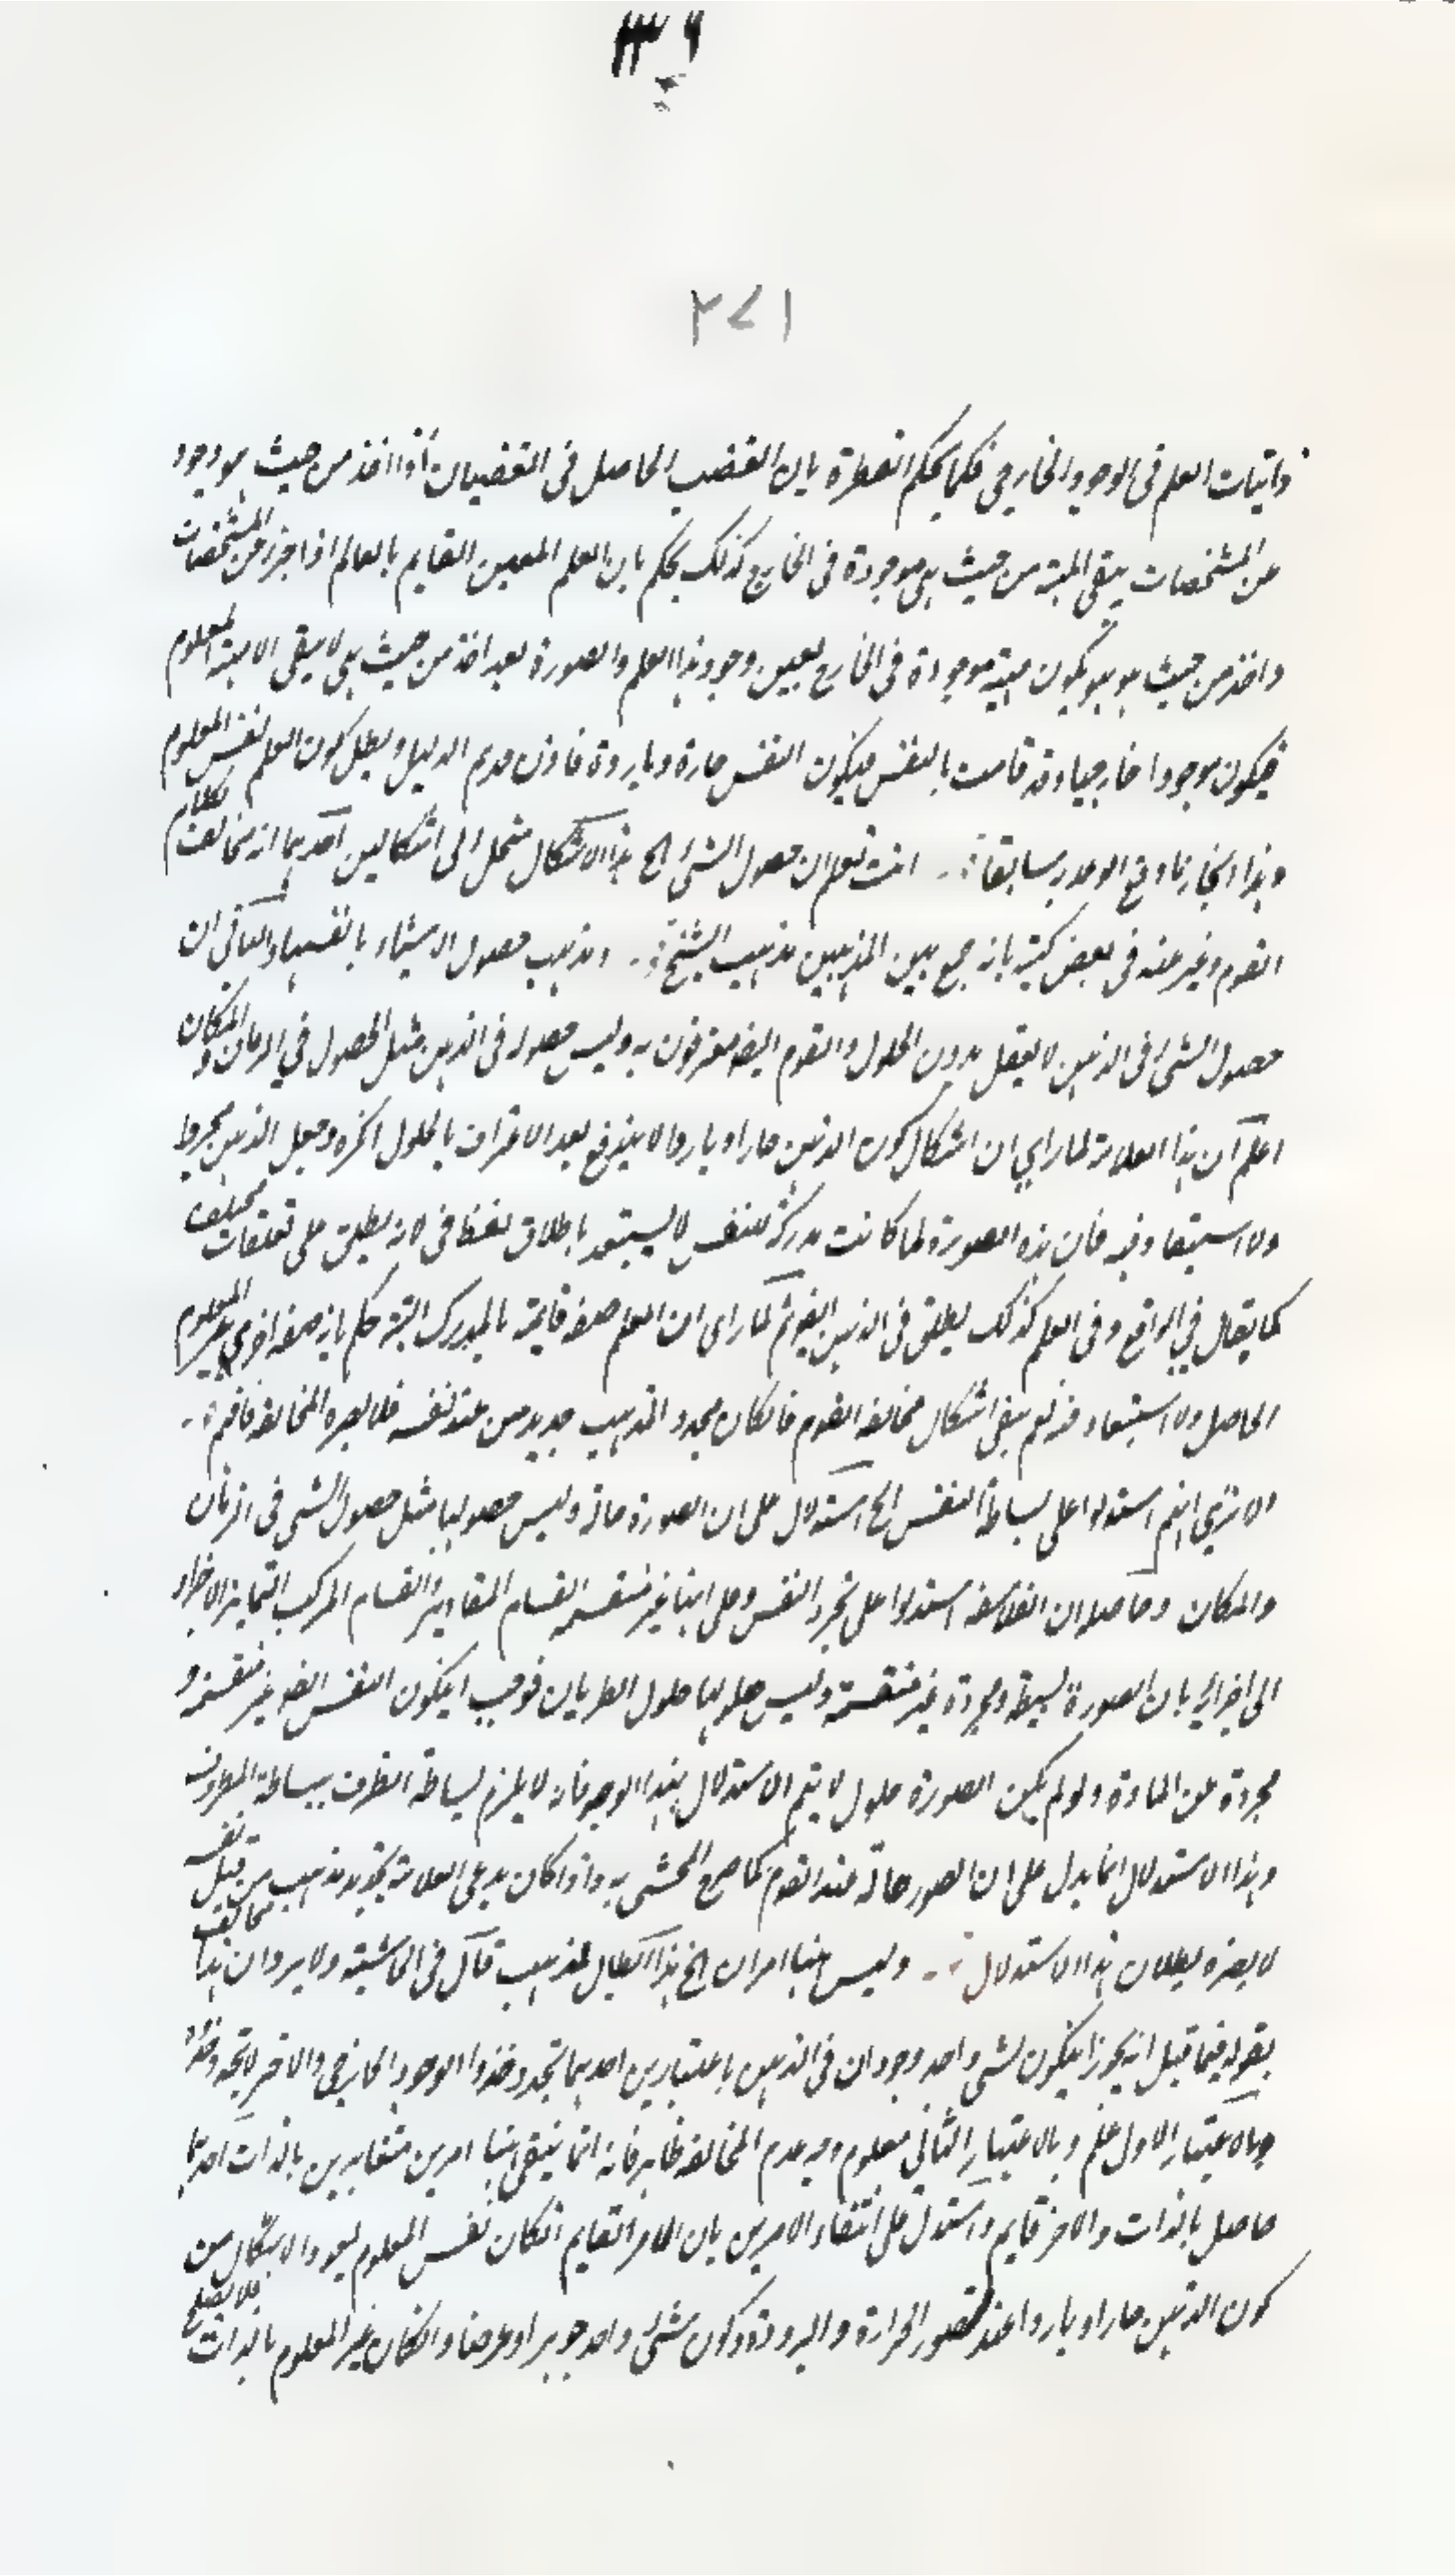 ٣٩
٢٧١
ذاتيات العلم فى الوجود الخارجى فكما يحكم الفطرة بان الغضب الحاصل فى الغضبان اذا اخذ من حيث هو وجود
عن المشخصات يبقى المهية من حيث هى موجودة فى الخارج كذلك يحكم بان العلم المعين القايم بالعالم اذا جرد عن المشخصات
واخذ من حيث هو هو يكون مهية موجودة فى الخارج بعين وجود هذا العلم والصورة بعد اخذ من حيث هى لا يبقى الا مهية المعلوم
فيكون موجودا خارجيا وقد قامت بالنفس فيكون النفس حارة وباردة فاذن الدليل وبطل كون العلم نفس المعلوم
وهذا انجاز ما وقع الوعد سابقا انت تعلم ان حصول الشئ الخ هذا الاشكال منحل الى اشكالين احدهما انه مخالف لكلام
القوم وعبر عنه فى بعض كتبه بانه جمع بين المذهبين مذهب الشبح ومذهب حصول الاشياء بانفسها والثانى ان
حصول الشئ فى الذهن لا يعقل بدون الحلول والقوم ايضا معترفون به وليس حصوله فى الذهن مثل الحصول فى الزمان والمكان
اعلم ان هذا العلامة لما راى ان اشكال كون الذهن حارا وباردا لا يندفع بعد الاعتراف بالحلول انكره وجعل الذهن
ولا استبعاد فيه فان هذه الصورة لما كانت مدركة للنفس لا يستبعد باطلاق لفظ فى لانه يطلق على تعلقات مختلفة
كما يقال فى الواقع وفى العلم كذلك يطلق فى الذهن ايضا ثم لما راى ان العلم صفة قايمة بالمدرك البتة حكم بانه صفة اخرى غير المعلوم
الحاصل ولا استبعاد فيه نعم بقى اشكال مخالفة القوم فان كان مجدد المذهب جديد من عند نفسه فلا يضره المخالفة فافهم
الا ترى انهم استدلوا على بساطة النفس الخ استدلال على ان الصورة حالة وليس حصولها مثل حصول الشئ فى الزمان
والمكان وحاصله ان الفلاسفة استدلوا على تجرد النفس وعلى انها غير منقسمة انقسام المقادير وانقسام المركب المتمايز الاجزاء
الى اجزائه بان الصورة بسيطة ومجردة غير منقسمة وليس حلولها حلول الطريان فوجب ان يكون النفس ايضا غير منقسمة و
مجردة عن المادة ولو لم يكن الصورة حلول لا يتم الاستدلال بهذا الوجه فانه لا يلزم بساطة الظرف ببساطة المظروف
وهذا الاستدلال انما يدل على ان الصور حالة عند القوم كما صرح المحشى به واذا كان يدعى العلامة تجديد مذهب من قبل نفسه
لا يضره بطلان هذا الاستدلال وليس هنا امران الخ هذا ابطال لمذهب قال فى الحاشية ولا يرد ان هذا مخالف
بقوله فيما قبل انه يجوز ان يكون لشئ واحد وجودان فى الذهن باعتبارين احدهما يحذو حذو الوجود الخارجى والاخر لا يحذو حذوه
وبالاعتبار الاول علم وبالاعتبار الثانى معلوم وجه عدم المخالفة ظاهر فانه انما ينفى هنا امرين متغايرين بالذات احدهما
حاصل بالذات والاخر قايم واستدل على انتفاء الامرين بان الامر القايم ان كان نفس المعلوم يعود الاشكال من
كون الذهن حارا وباردا عند تصور الحرارة والبرودة وكون شئ واحد جوهرا وعرضا وان كان غير المعلوم بالذات فلا يصلح